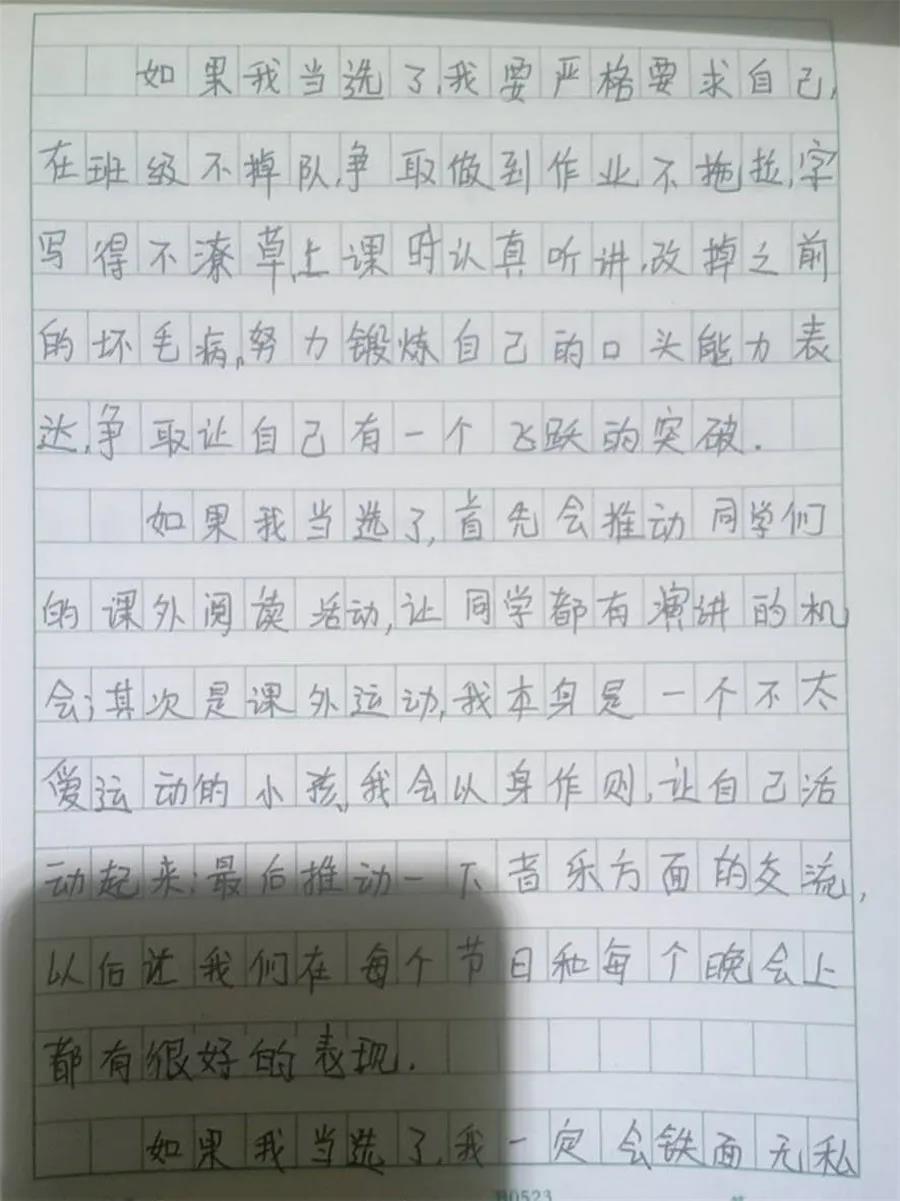 如果我当选了,我要严格要求自己,
在班级不掉队,争取做到作业不拖拉,字
写得不潦草,上课时认真听讲,改掉之前
的坏毛病,努力锻炼自己的口头能力表
达,争取让自己有一个飞跃的突破.
如果我当选了,首先会推动同学们
的课外阅读活动,让同学都有演讲的机
会;其次是课外运动,我本身是一个不太
爱运动的小孩,我会以身作则,让自己活
动起来;最后推动一下音乐方面的交流,
以后让我们在每个节日和每个晚会上
都有很好的表现.
如果我当选了,我一定会铁面无私
B0523